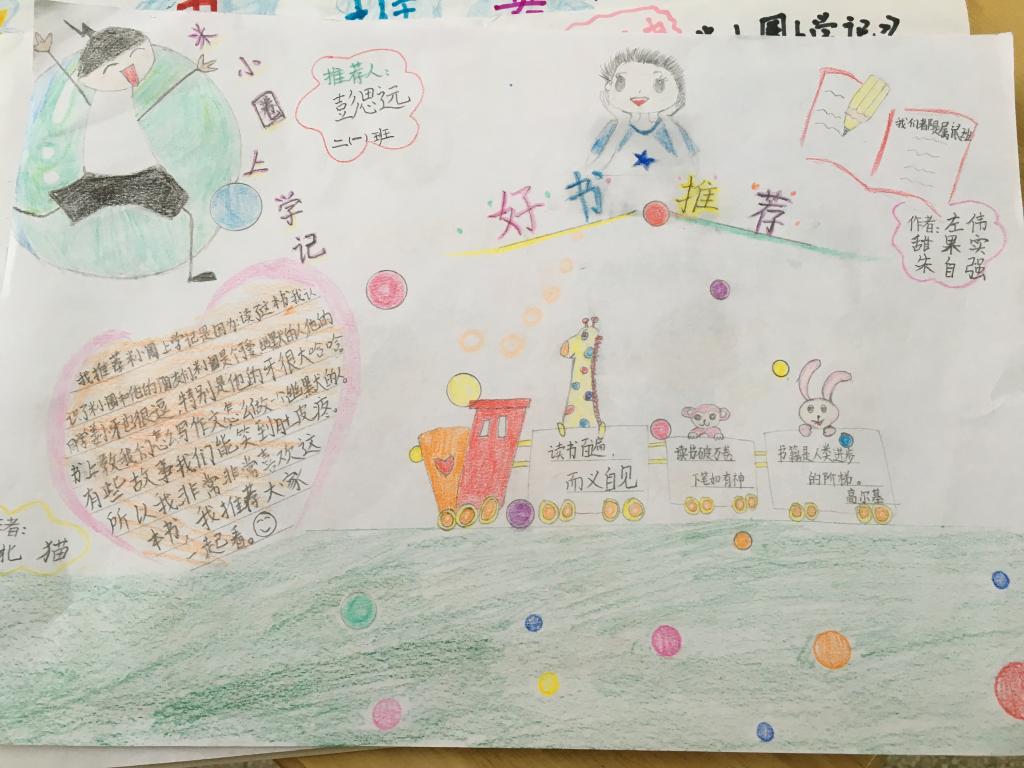 米小圈上学记
推荐人:
彭思远
二(一)班
好书推荐
我们都是属鼠班
作者:左伟
甜果实
朱自强
我推荐米小圈上学记是因为读这本书我认
识了米小圈和他的朋友们米小圈是个幽默的人他的
同学
牙也很逗,特别是他的牙很大哈哈
书上教我怎么写作文怎么做一个幽默大的人。
有些故事我们能笑到肚皮疼。
所以我非常非常喜欢这
本书,我推荐大家
一起看。
读书百遍,
而义自见
读书破万卷
下笔如有神
书籍是人类进步
的阶梯。
高尔基
者:
北猫
上学记